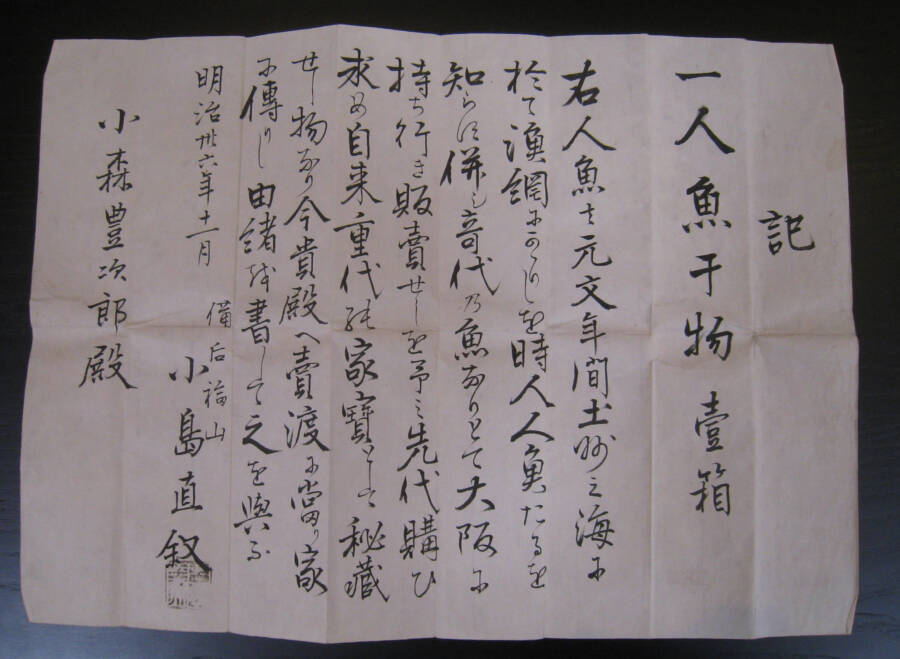 記
一人魚干物 壹箱
右人魚ハ元文年間土州之海ニ
於て漁網にかゝりしを時人人魚たるを
知らす併し奇代乃魚なりとて大阪に
持ち行き販賣せしを予之先代購ひ
求め自来重代の家寶として秘藏
せし物なり今貴殿へ賣渡に當り家
に傳りし由緒を書して之を與ふ
明治卅六年十一月
備后福山
小島直叙
小森豊次郎殿